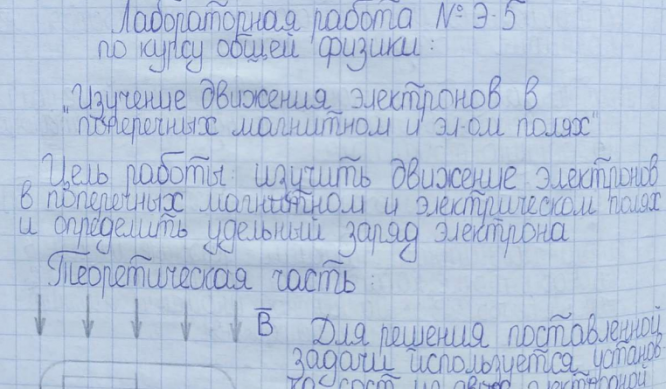 Лабораторная работа № Э-5
по курсу общей физики:
„Изучение движения электронов в
поперечных магнитном и эл-ом полях"
Цель работы: изучить движение электронов
в поперечных магнитном и электрическом полях
и определить удельный заряд электрона
Теоретическая часть:
B̅
Для решения поставленной
задачи используется установ